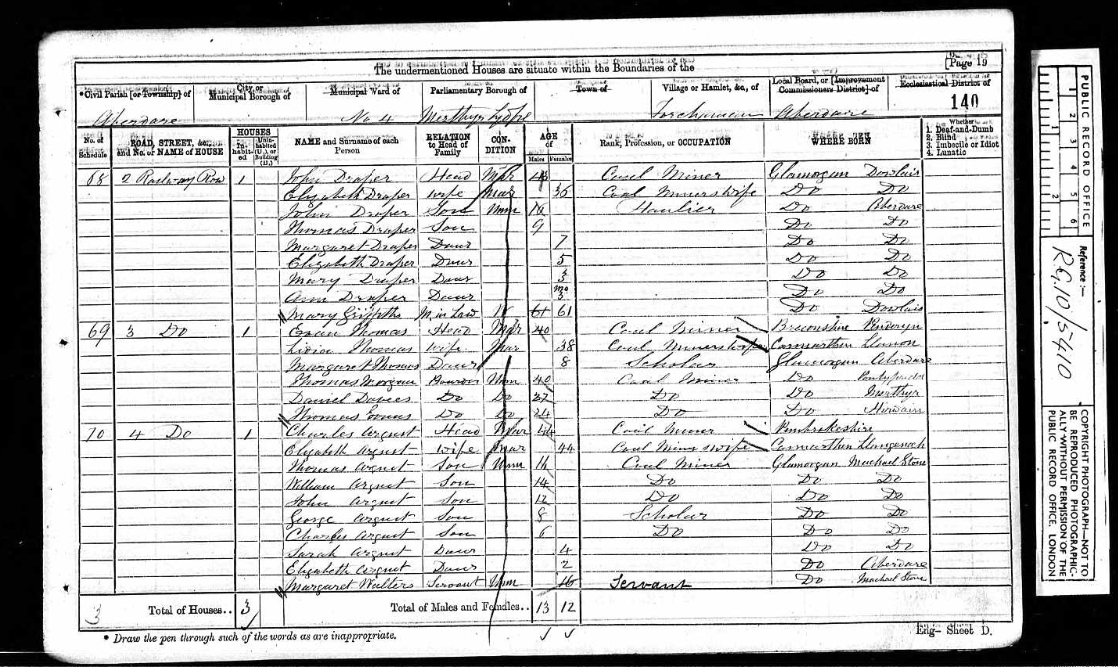 Page 19
The undermentioned Houses are situate within the Boundaries of the
*Civil Parish [or Township] of
City or Municipal Borough of
Municipal Ward of
Parliamentary Borough of
Town of
Village or Hamlet, &c., of
Local Board, or [Improvement Commissioners District] of
Ecclesiastical District of
140
Aberdare No 4 Merthyr Tydfil Aberdare
No. of Schedule
ROAD, STREET, &c., and No. or NAME of HOUSE
HOUSES
Inhabited
Uninhabited (U.), or Building (B.)
NAME and Surname of each Person
RELATION to Head of Family
CONDITION
AGE of
Males Females
Rank, Profession, or OCCUPATION
WHERE BORN
Whether
1. Deaf-and-Dumb
2. Blind
3. Imbecile or Idiot
4. Lunatic
68 2 Railway Row 1 John Draper Head Mar Coal Miner Glamorgan Dowlais
Elizabeth Draper wife Mar 36 Coal Miners wife Do Do
John Draper Son Unm 16 Haulier Do Aberdare
Thomas Draper Son 9 Do Do
Margaret Draper Daur 7 Do Do
Elizabeth Draper Daur 5 Do Do
Mary Draper Daur 3 Do Do
Ann Draper Daur Mo 3 Do Do
Mary Griffiths M. in Law W 61 61 Do Dowlais
69 3 Do 1 Evan Thomas Head Mar 40 Coal Miner Breconshire Penderyn
Thomas wife Mar 38 Coal Miners wife Carmarthen Llannon
Margaret Thomas Daur 8 Scholar Glamorgan Aberdare
Thomas Morgan Boarder Unm 40 Coal Miner Do
Daniel Davies Do Do 27 Do Do Merthyr
Thomas Evans Do Do 24 Do Do Hirwain
70 4 Do 1 Charles Argust Head Mar 44 Coal Miner Pembrokeshire
Elizabeth Argust wife Mar 44 Coal Miners wife Carmarthen Llangennech
Thomas Argust Son Unm 16 Coal Miner Glamorgan Machael Stone
William Argust Son 14 Do Do Do
John Argust Son 12 Do Do Do
George Argust Son 8 Scholar Do Do
Charles Argust Son 6 Do Do Do
Sarah Argust Daur 4 Do Do
Elizabeth Argust Daur 2 Do Aberdare
Margaret Walters Servant Unm 16 Servant Do Machael Stone
3 Total of Houses.. 3 Total of Males and Females.. 13 12
* Draw the pen through such of the words as are inappropriate.
Eng- Sheet D.
PUBLIC RECORD OFFICE
1 2 3 4 5 6
1 2
Reference :-
RG 10/5410
COPYRIGHT PHOTOGRAPH—NOT TO BE REPRODUCED PHOTOGRAPHICALLY WITHOUT PERMISSION OF THE PUBLIC RECORD OFFICE, LONDON